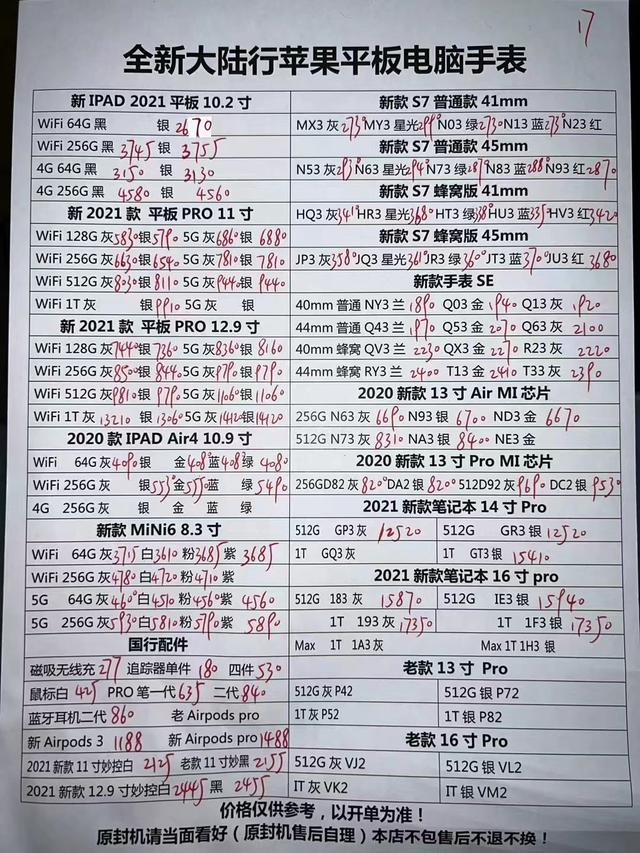 17
全新大陆行苹果平板电脑手表
新 IPAD 2021 平板 10.2 寸
WiFi 64G 黑 银 2670
WiFi 256G 黑 3745 银 3755
4G 64G 黑 3150 银 3130
4G 256G 黑 4580 银 4560
新 2021 款 平板 PRO 11 寸
WiFi 128G 灰 5830 银 5790 5G 灰 6860 银 6880
WiFi 256G 灰 6630 银 6540 5G 灰 7810 银 7810
WiFi 512G 灰 8030 银 8110 5G 灰 9440 银 9440
WiFi 1T 灰 银 9910 5G 灰 银
新 2021 款 平板 PRO 12.9 寸
WiFi 128G 灰 7440 银 7360 5G 灰 8360 银 8160
WiFi 256G 灰 8500 银 8440 5G 灰 9790 银 9790
WiFi 512G 灰 9810 银 9790 5G 灰 11060 银 11060
WiFi 1T 灰 13210 银 13060 5G 灰 14120 银 14120
2020 款 IPAD Air4 10.9 寸
WiFi 64G 灰 4090 银 金 4080 蓝 4080 绿 4080
WiFi 256G 灰 银 5530 金 5550 蓝 绿 5490
4G 256G 灰 银 金 蓝 绿
新款 MiNi6 8.3 寸
WiFi 64G 灰 3715 白 3610 粉 3685 紫 3685
WiFi 256G 灰 4780 白 4720 粉 4710 紫
5G 64G 灰 4600 白 4510 粉 4560 紫 4560
5G 256G 灰 5930 白 5810 粉 5790 紫 5890
国行配件
磁吸无线充 277 追踪器单件 180 四件 530
鼠标白 425 PRO 笔一代 635 二代 840
蓝牙耳机二代 860 老 Airpods pro
新 Airpods 3 1188 新 Airpods pro 1488
2021 新款 11 寸妙控白 2125 老款 11 寸妙黑 2155
2021 新款 12.9 寸妙控白 2445 黑 2455
新款 S7 普通款 41mm
MX3 灰 2730 MY3 星光 2990 N03 绿 2730 N13 蓝 2730 N23 红
新款 S7 普通款 45mm
N53 灰 2930 N63 星光 2940 N73 绿 2870 N83 蓝 2880 N93 红 2870
新款 S7 蜂窝版 41mm
HQ3 灰 3410 HR3 星光 3680 HT3 绿 HU3 蓝 3350 HV3 红 3420
新款 S7 蜂窝版 45mm
JP3 灰 3580 JQ3 星光 3610 JR3 绿 3600 JT3 蓝 3700 JU3 红 3680
新款手表 SE
40mm 普通 NY3 兰 1890 Q03 金 1940 Q13 灰 1920
44mm 普通 Q43 兰 1970 Q53 金 2070 Q63 灰 2100
40mm 蜂窝 QV3 兰 2230 QX3 金 2270 R23 灰 2220
44mm 蜂窝 RY3 兰 2400 T13 金 2410 T33 灰 2390
2020 新款 13 寸 Air MI 芯片
256G N63 灰 6690 N93 银 6700 ND3 金 6670
512G N73 灰 8310 NA3 银 8400 NE3 金
2020 新款 13 寸 Pro MI 芯片
256GD82 灰 8200 DA2 银 8200 512D92 灰 9690 DC2 银 9530
2021 新款笔记本 14 寸 Pro
512G GP3 灰 12520 512G GR3 银 12520
1T GQ3 灰 1T GT3 银 15410
2021 新款笔记本 16 寸 pro
512G 183 灰 15870 512G IE3 银 15940
1T 193 灰 17350 1T 1F3 银 17350
Max 1T 1A3 灰 Max 1T 1H3 银
老款 13 寸 Pro
512G 灰 P42 512G 银 P72
1T 灰 P52 1T 银 P82
老款 16 寸 Pro
512G 灰 VJ2 512G 银 VL2
IT 灰 VK2 IT 银 VM2
价格仅供参考，以开单为准！
原封机请当面看好（原封机售后自理）本店不包售后不退不换！